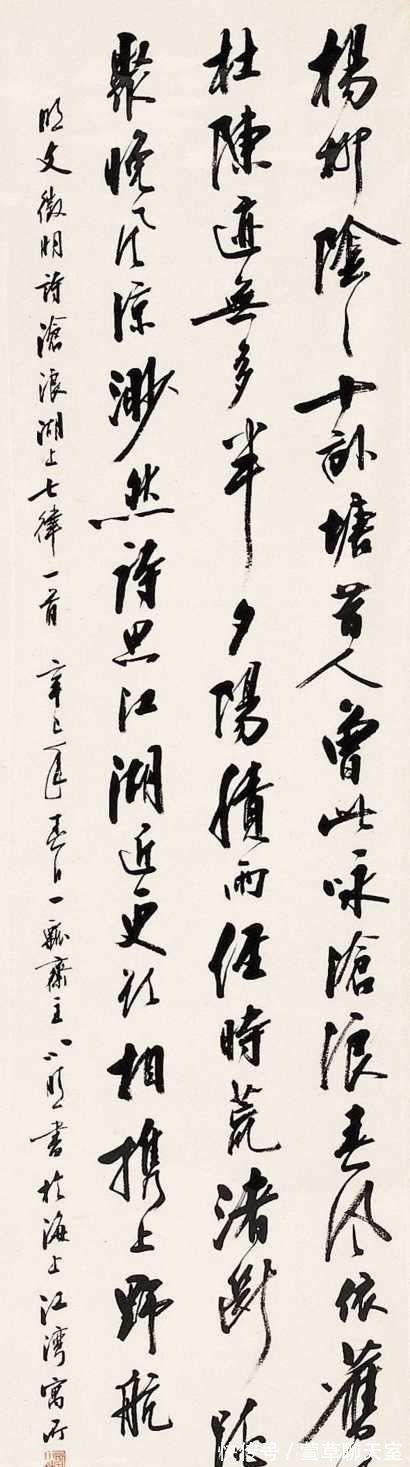 楊柳陰〻十畝塘昔人曾此詠滄浪春風依舊
杜陳迹無多半夕陽積雨經時荒渚斷跳
聚晚風涼渺然詩思江湖近更欲相攜上野航
明文徵明詩滄浪湖上七律一首 辛巳年春日一瓢齋主 書於海上江灣寓所
快传号/萱草聊天室